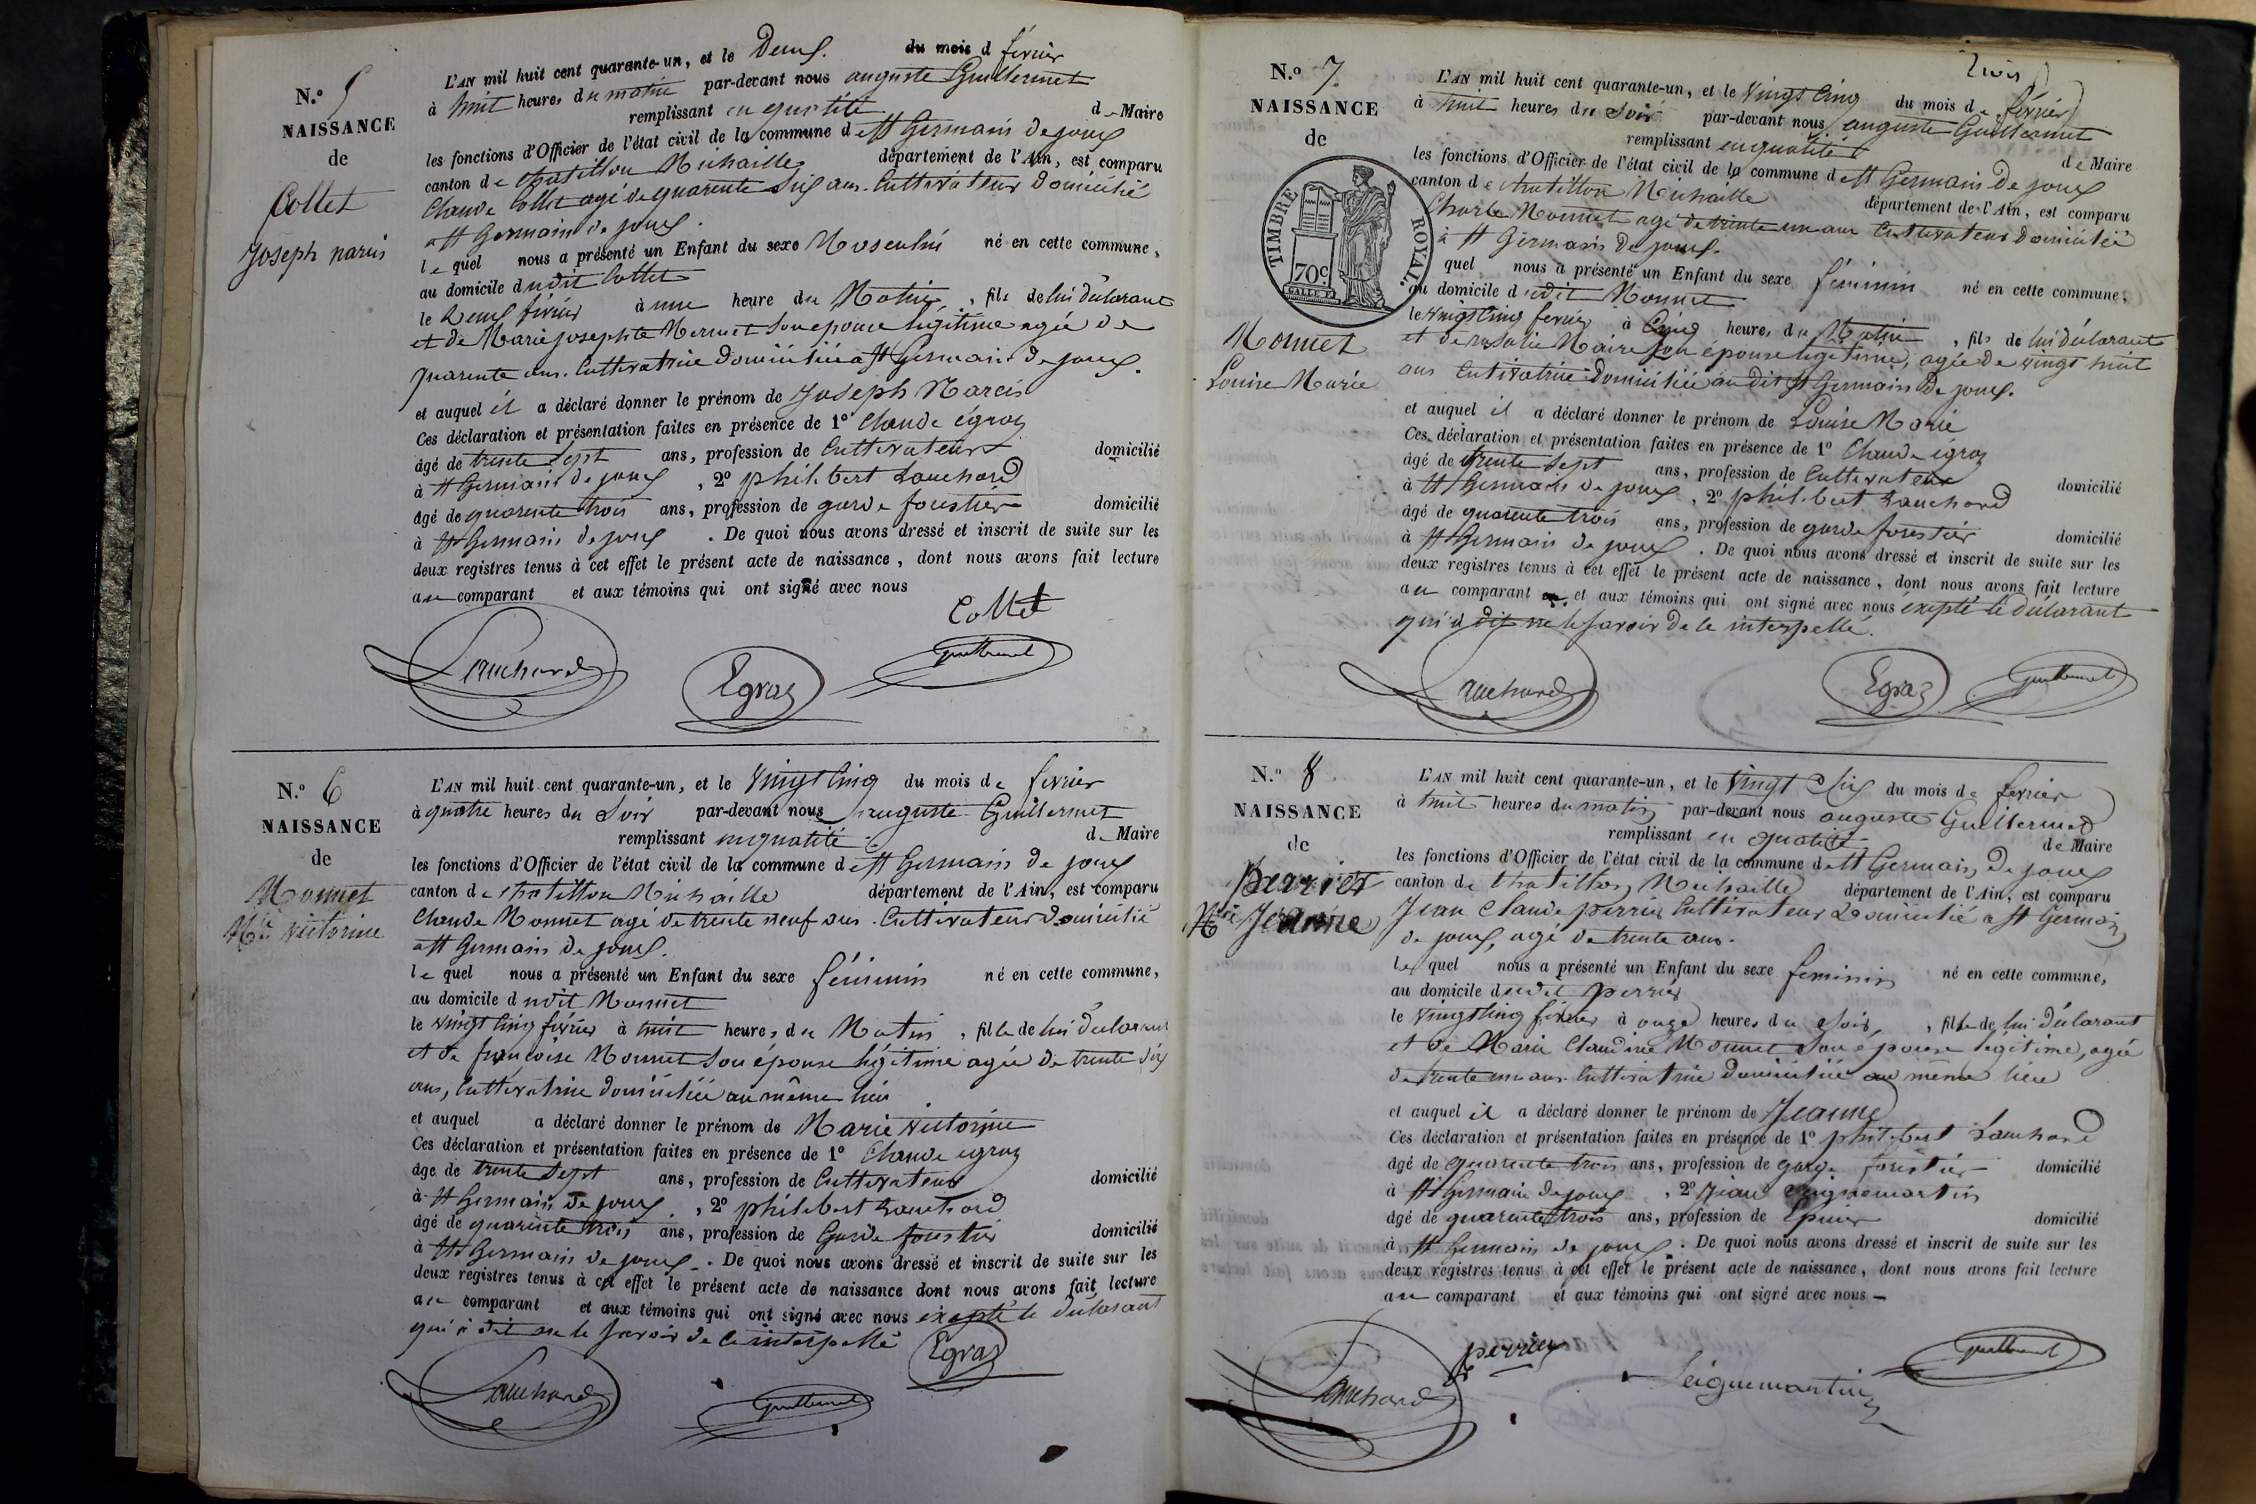 N.º 5
NAISSANCE
de
Collet
Joseph narcis
L'AN mil huit cent quarante-un, et le Deux. du mois d fevrier
à huit heures du matin par-devant nous auguste Guillermet
remplissant en qualité de Maire
les fonctions d'Officier de l'état civil de la commune de St Germain de joux
canton de chatillon Michaille département de l'Ain, est comparu
Claude Collet agé de quarente six ans. Cultivateur domicilié
a St Germain de joux.
le quel nous a présenté un Enfant du sexe Masculin né en cette commune,
au domicile dudit Collet
le Deux février à une heure du Matin, fils de lui déclarant
et de Marie josephte Mermet son épouse légitime agée de
quarente ans. Cultivatrice domiciliée a St Germain de joux.
et auquel il a déclaré donner le prénom de Joseph Narcis
Ces déclaration et présentation faites en présence de 1º Claude égraz
âgé de trente sept ans, profession de Cultivateur domicilié
à St Germain de joux, 2º philibert Lauchard
âgé de quarente trois ans, profession de garde forestier domicilié
à St Germain de joux. De quoi nous avons dressé et inscrit de suite sur les
deux registres tenus à cet effet le présent acte de naissance, dont nous avons fait lecture
au comparant et aux témoins qui ont signé avec nous
Collet
Lauchard Egraz Guillermet
N.º 6
NAISSANCE
de
Monnet
Mie victorine
L'AN mil huit cent quarante-un, et le Vingt Cinq du mois de fevrier
à quatre heures du Soir par-devant nous auguste Guillermet
remplissant en qualité de Maire
les fonctions d'Officier de l'état civil de la commune de St Germain de joux
canton de chatillon Michaille département de l'Ain, est comparu
Claude Monnet agé de trente neuf ans. Cultivateur domicilié
a St Germain de joux.
le quel nous a présenté un Enfant du sexe féminin né en cette commune,
au domicile dudit Monnet
le vingt Cinq février à huit heures du Matin, fille de lui déclarant
et de françoise Monnet son épouse légitime agée de trente six
ans, Cultivatrice domiciliée au même lieu
et auquel a déclaré donner le prénom de Marie victorine
Ces déclaration et présentation faites en présence de 1º Claude égraz
âge de trente sept ans, profession de Cultivateur domicilié
à St Germain de joux, 2º philibert Lauchard
âgé de quarente trois ans, profession de Garde forestier domicilié
à St Germain de joux. De quoi nous avons dressé et inscrit de suite sur les
deux registres tenus à cet effet le présent acte de naissance dont nous avons fait lecture
au comparant et aux témoins qui ont signé avec nous éxepté le déclarant
qui à dit ne le savoir de ce interpellé
Egraz
Lauchard Guillermet
trois
N.º 7.
NAISSANCE
de
TIMBRE ROYAL
70 c.
Monnet
Louise Marie
L'AN mil huit cent quarante-un, et le Vingt Cinq du mois de février
à huit heures du Soir par-devant nous auguste Guillermet
remplissant en qualité de Maire
les fonctions d'Officier de l'état civil de la commune de St Germain de joux
canton de chatillon Michaille département de l'Ain, est comparu
Charle Monnet agé de trente un ans Cultivateur domicilié
à St Germain de joux.
quel nous a présenté un Enfant du sexe féminin né en cette commune,
au domicile dudit Monnet
le vingt Cinq fevrier à Cinq heures du Matin, fils de lui déclarant
et de rosalie Maire son épouse légitime, agée de vingt huit
ans Cutivatrice domiciliée au dit St Germain de joux.
et auquel il a déclaré donner le prénom de Louise Marie
Ces déclaration et présentation faites en présence de 1º Claude égraz
âgé de trente sept ans, profession de Cultivateur domicilié
à St Germain de joux, 2º philibert Lauchard
âgé de quarente trois ans, profession de garde forestier domicilié
à St Germain de joux. De quoi nous avons dressé et inscrit de suite sur les
deux registres tenus à cet effet le présent acte de naissance, dont nous avons fait lecture
au comparant et aux témoins qui ont signé avec nous éxepté le déclarant
qui à dit ne le savoir de ce interpellé.
Lauchard Egraz Guillermet
N.º 8
NAISSANCE
de
perrier
Mie Jeanne
L'AN mil huit cent quarante-un, et le Vingt Six du mois de fevrier
à huit heures du matin par-devant nous auguste Guillermet
remplissant en qualité de Maire
les fonctions d'Officier de l'état civil de la commune de St Germain de joux
canton de Chatillon Michaille département de l'Ain, est comparu
Jean Claude perrier Cultivateur domicilié a St Germain
de joux, agé de trente ans.
le quel nous a présenté un Enfant du sexe feminin né en cette commune,
au domicile dudit perrier
le Vingt Cinq février à onze heures du Soir, fille de lui déclarant
et de Marie Claudine Monnet son épouse légitime, agée
de trente un ans. Cultivatrice domiciliée au même lieu
et auquel il a déclaré donner le prénom de Jeanne
Ces déclaration et présentation faites en présence de 1º philibert Lauchard
âgé de quarente trois ans, profession de garde forestier domicilié
à St Germain de joux, 2º jean seignemartin
âgé de quarente trois ans, profession de Epicier domicilié
à St Germain de joux. De quoi nous avons dressé et inscrit de suite sur les
deux registres tenus à cet effet le présent acte de naissance, dont nous avons fait lecture
au comparant et aux témoins qui ont signé avec nous
perrier Guillermet
Lauchard Seignemartin